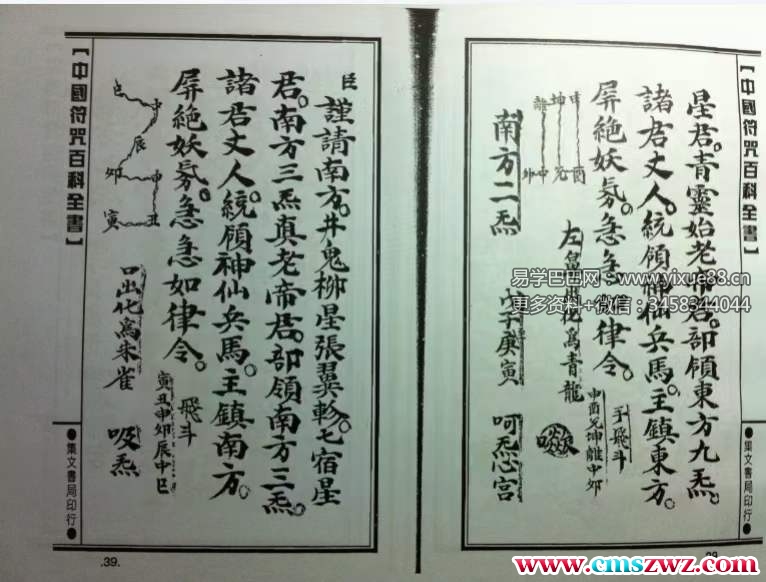 【中國符咒百科全書】
星君。青靈始老帝君。部領東方九炁。
諸君丈人。統領神仙兵馬。主鎮東方。
屏絕妖氛。急急如律令。
手飛斗
申酉兌坤離中卯
申
坤
離
酉
兌
中
卯
左
出化為青龍
南方二炁
戊子庚寅
呵炁心宮
●集文書局印行●
臣
謹請南方。井鬼柳星張翼軫。七宿星
君。南方三炁真老帝君。部領南方三炁。
諸君丈人。統領神仙兵馬。主鎮南方。
屏絕妖氛。急急如律令。
飛斗
寅丑申卯辰中巳
巳
中
辰
卯
申
寅
丑
口出化為朱雀
吸炁
【中國符咒百科全書】
●集文書局印行●
.39.
易学巴巴网 www.yixue88.cn
更多资料+微信：3458344044
www.cmszwz.com